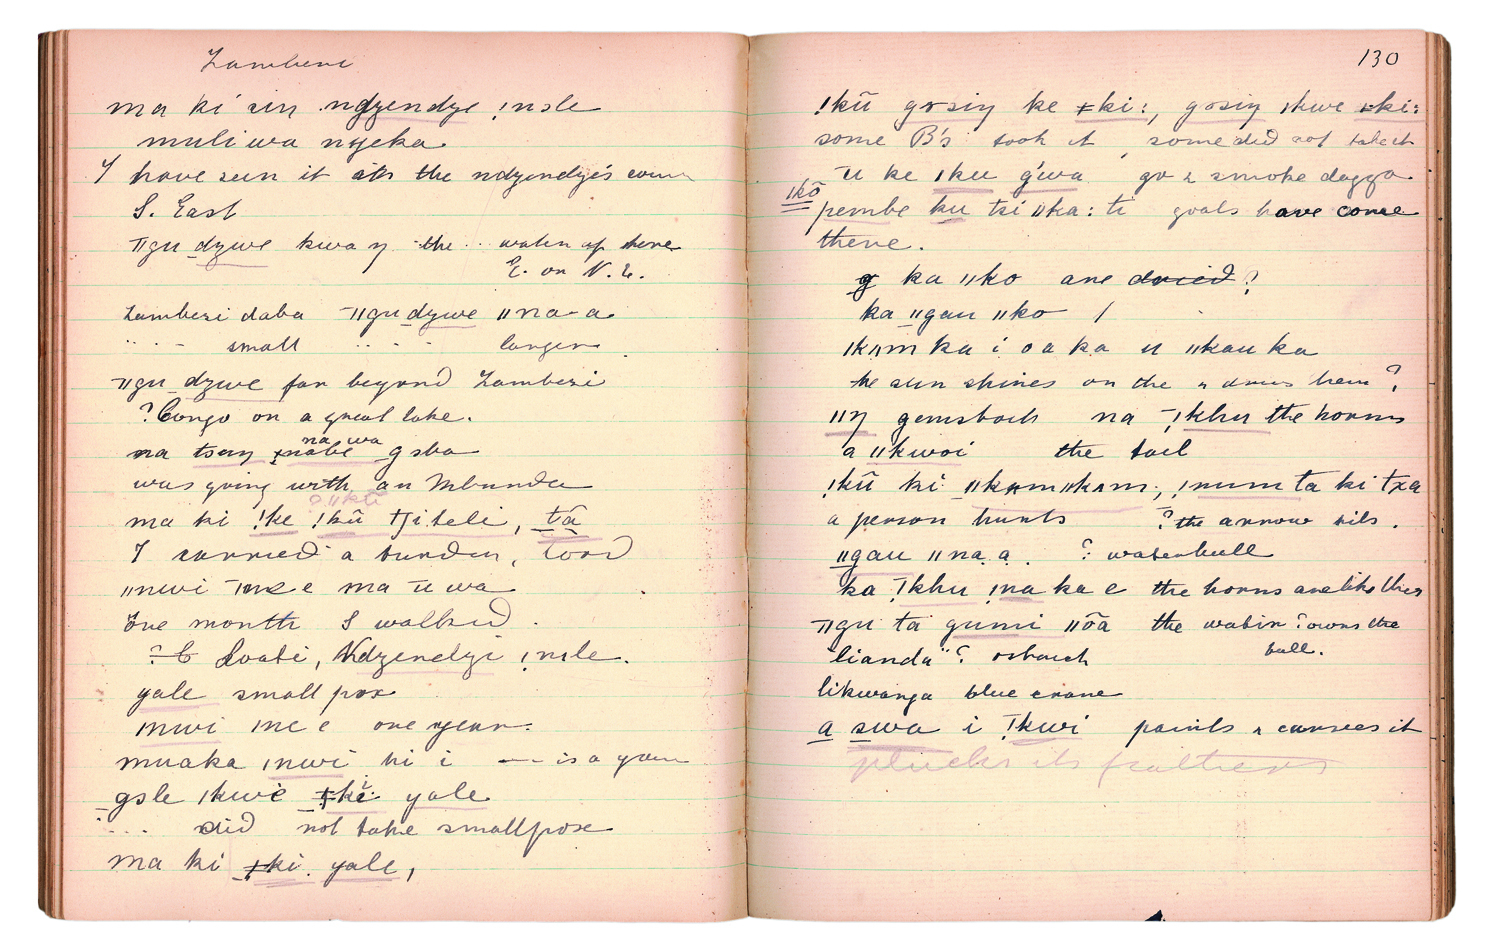 Zambesi
ma ki siŋ ndzendze ǃnsle
muliwa nyeka
I have seen it its the ndzendze's coun
S. East
ǁgu dzwe kwa ŋ the .. water of there
E. or N.E.
Zambesi daba ǁgu dzwe ǁna-a
small longer
ǁgu dzwe far beyond Zambesi
? Congo or a great lake.
na wa
na tsaŋ ǂnabe g sba
was going with an Mbunda
? ǁkū
ma ki ǃke ǃkū tʃiteli, tā
I carried a burden, load
ǁnwi ǀnse ma ū wa
One month I walked.
? C Loati, Ndzendzi ǃnsle.
yale small pox
ǀnwi ǀne e one year.
muaka ǀnwi hi i — is a year
gsle ǀkwe ǂki: yale
... did not take smallpox
ma ki ǂki. yale,
130
ǃkū gosiŋ ke ǂki:, gosiŋ ǀkwe ǂki:
some B's took it, some did not take it
ū ke ǀku g'wa go & smoke dagga
ǀkō
pembe ku tsi ǁka: ti goats have come
there.
g ka ǁko are dried?
ka ǁgau ǁko /
ǀkʌm ka i o a ka u ǁkau ka
the sun shines on the & draws them?
ǁŋ gemsbock na ǃkhu the horns
a ǁkwoi the tail
ǃkū ki ǁkʌmǁkʌm:, ǃnum ta ki txa
a person hunts ? the arrow kils.
ǁgau ǁna a ? waterbull
ka ǃkhu ǀna ka e the horns are like this
ǁgu ta gumi ǁōa the water ? owns the
bull.
"lianda" ? ostrich
likwanga blue crane
a swa i ǃkwi paints & curses it
plucks its feathers